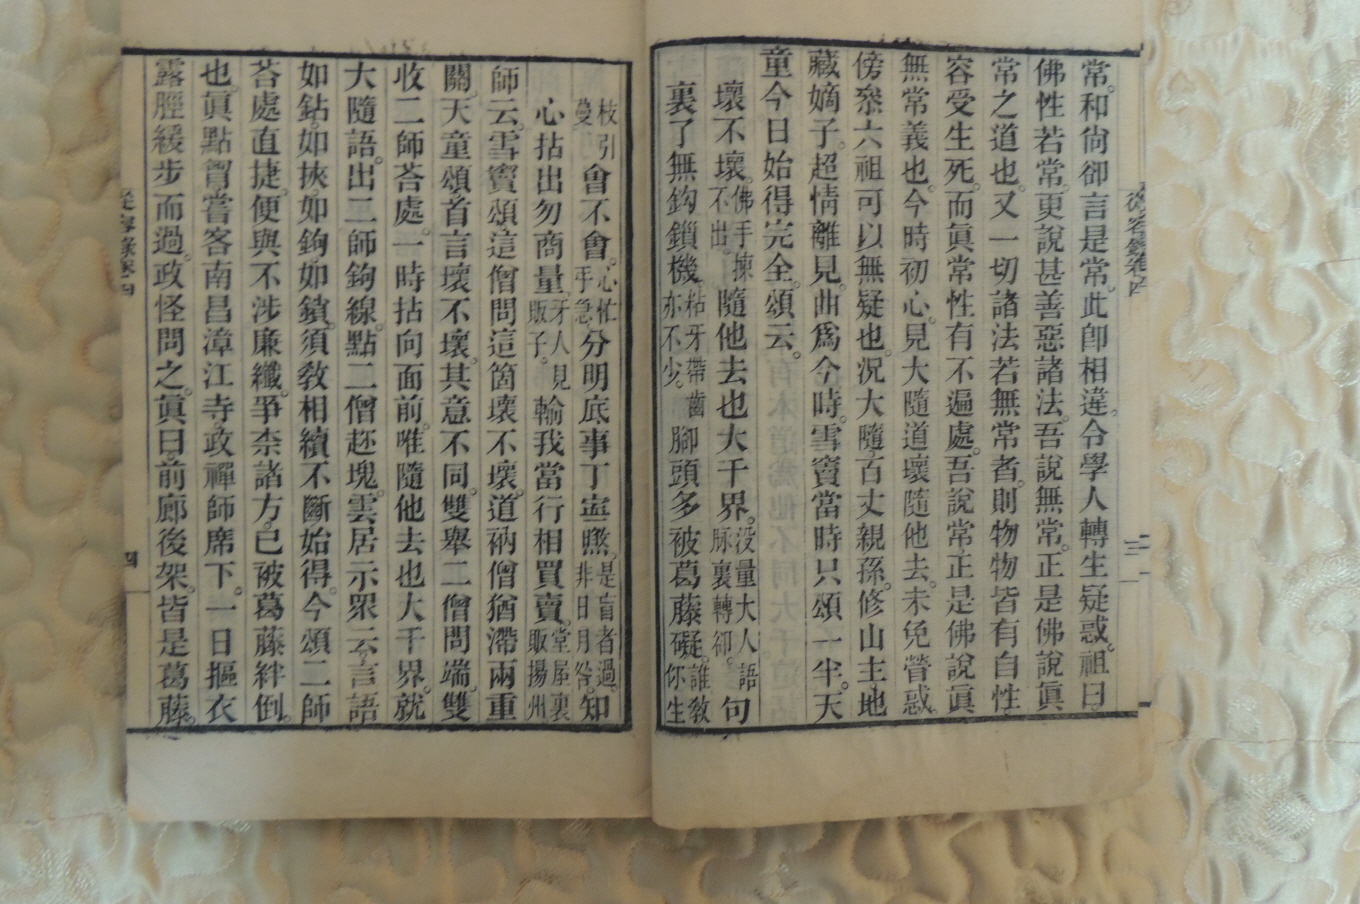 從容錄卷四
三
常。和尙卻言是常。此卽相違。令學人轉生疑惑。祖曰。
佛性若常。更說甚善惡諸法。吾說無常。正是佛說眞
常之道也。又一切諸法若無常者。則物物皆有自性
容受生死。而眞常性有不遍處。吾說常。正是佛說眞
無常義也。今時初心。見大隨道壞隨他去。未免督惑。
傍叅六祖可以無疑也。況大隨百丈親孫。修山主地
藏嫡子。超情離見。曲爲今時。雪竇當時只頌一半。天
童今日始得完全。頌云。
壞不壞。佛手揀不出。隨他去也大千界。沒量大人語脉裏轉卻。句
裏了無鈎鎖機。粘牙帶齒亦不少。腳頭多被葛藤礙。誰敎你生
枝引蔓會不會。心忙手急分明底事丁寧煞。是盲者過。非日月咎。知
心拈出勿商量。牙人見販子。輸我當行相買賣。堂屋裏販揚州
師云。雪竇頌這僧問這箇壞不壞。道衲僧猶滯兩重
關。天童頌首言壞不壞。其意不同。雙舉二僧問端。雙
收二師荅處。一時拈向面前。唯隨他去也大千界。就
大隨語。出二師鉤線。點二僧趂塊。雲居示眾云。言語
如鉆。如挾。如鉤。如鎖。須敎相續不斷始得。今頌二師
荅處直捷。便與不涉廉纖。爭柰諸方。已被葛藤絆倒。
也。眞點胷嘗客南昌漳江寺。政禪師席下。一日摳衣
露脛緩步而過。政怪問之。眞曰。前廊後架。皆是葛藤。
從容錄卷四
四